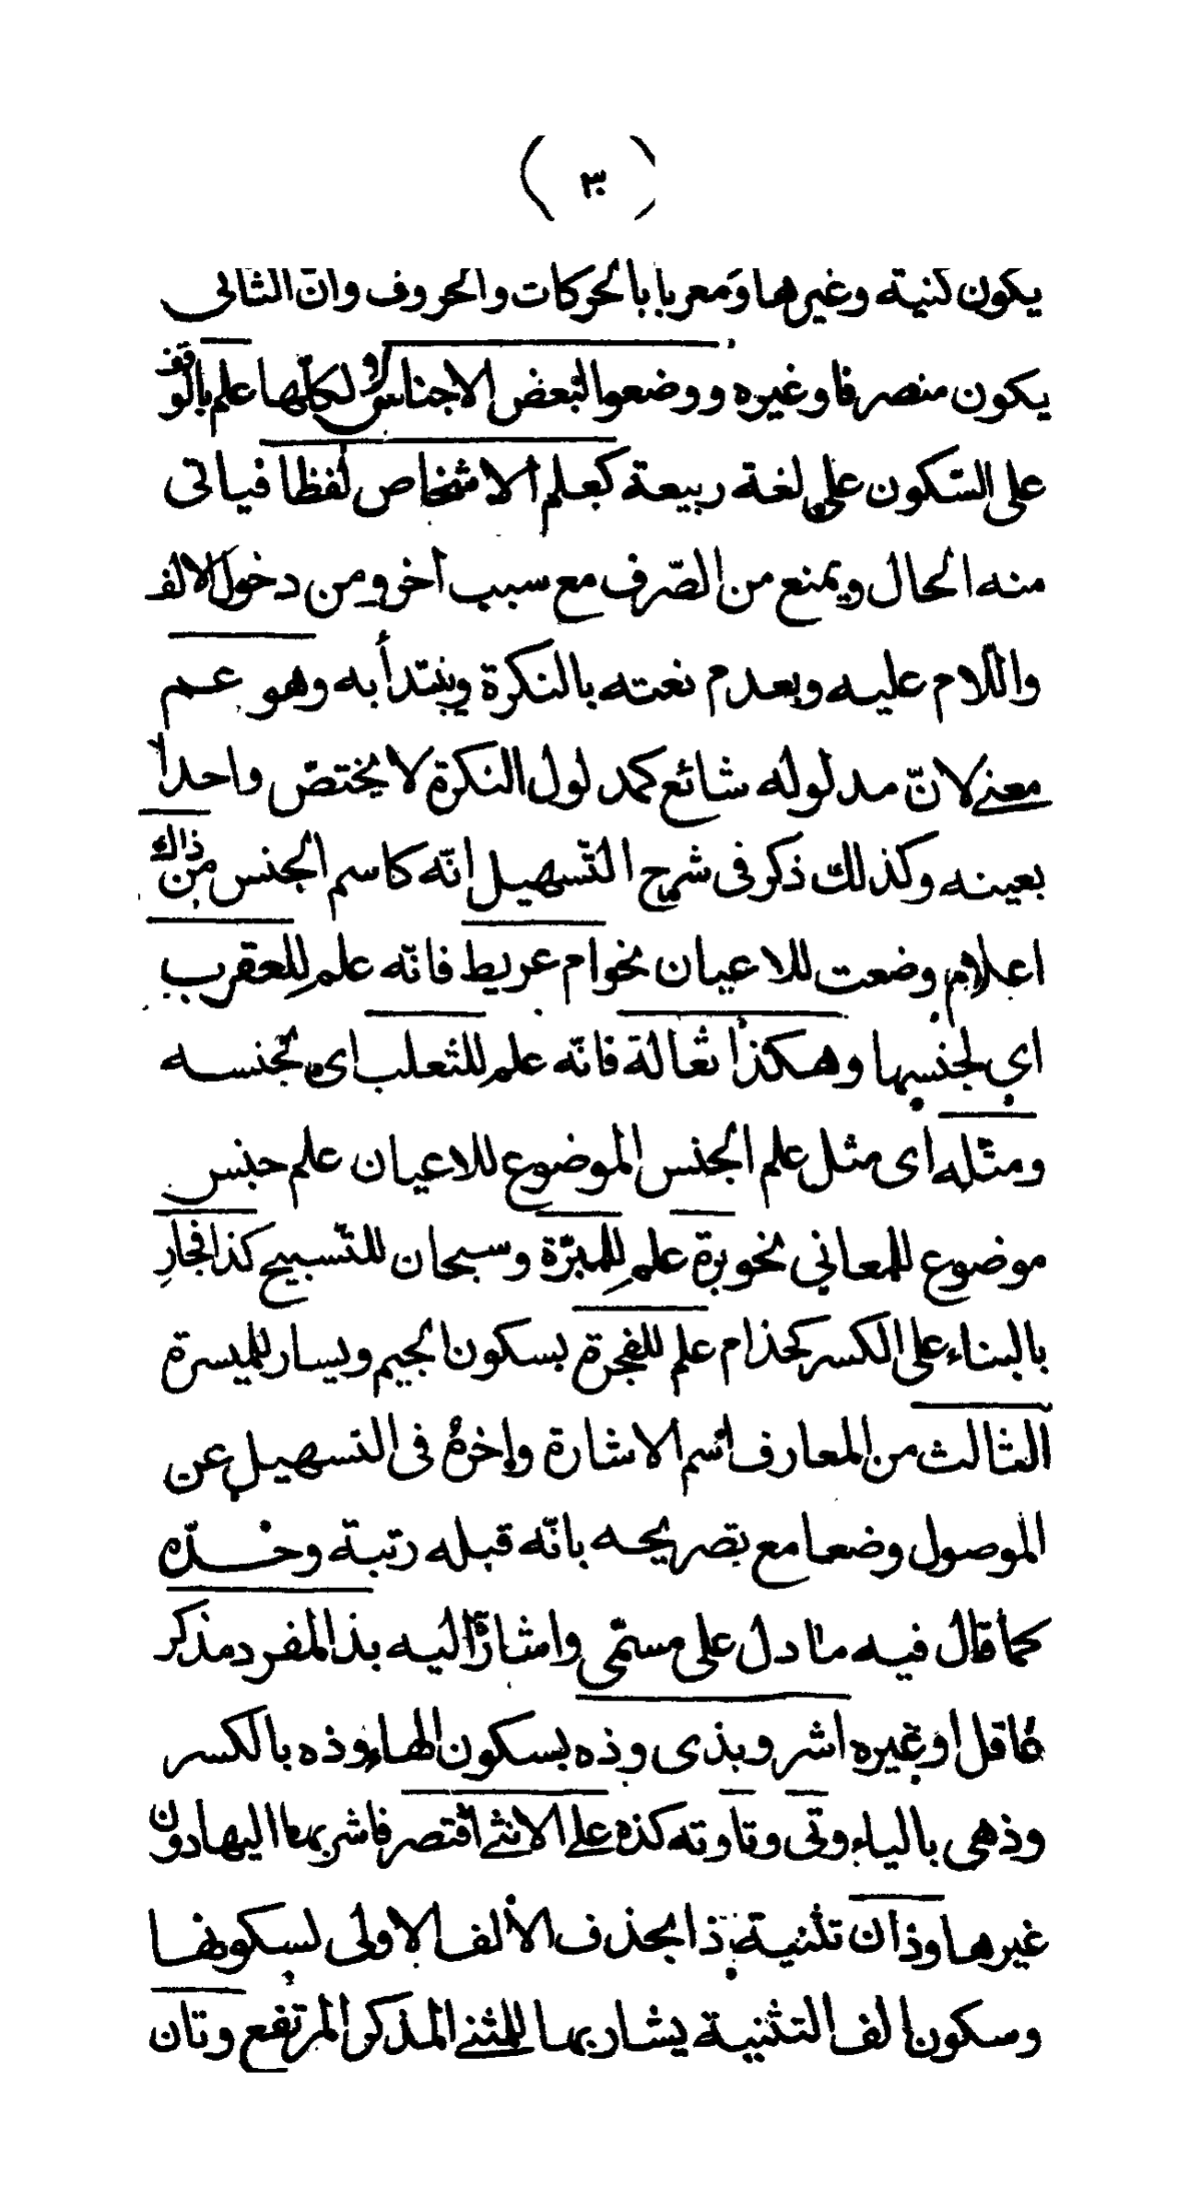 ( ٣٠ )
يكون كنية وغيرها ومعربا بالحركات والحروف وانّ الثانى
يكون منصرفا وغيره ووضعوا لبعض الاجناس لا لكلّها علم بالوقف
على السّكون على لغة ربيعة كعلم الاشخاص لفظا فياتى
منه الحال ويمنع من الصّرف مع سبب آخر ومن دخول الالف
واللّام عليه وبعدم نعته بالنكرة ويبتدأ به وهو عم
معنى لانّ مدلوله شائع كمدلول النكرة لا يختصّ واحدا
بعينه وكذلك ذكر فى شرح التّسهيل انّه كاسم الجنس من ذاك
اعلام وضعت للاعيان نحو ام عريط فانّه علم للعقرب
اي لجنسها وهكذا ثعالة فانّه علم للثعلب اى لجنسه
ومثله اى مثل علم الجنس الموضوع للاعيان علم جنس
موضوع للمعاني نحو برة علم للمبرّة وسبحان للتّسبيح كذا فجارِ
بالبناء على الكسر كحذام علم للفجرة بسكون الجيم ويسار للميسرة
الثالث من المعارف اسم الاشارة واخره فى التسهيل عن
الموصول وضعا مع تصريحه بانّه قبله رتبة وحدّه
كما قال فيه ما دل على مسمّى واشارة اليه بذا لمفرد مذكر
عاقل او غيره اشر وبذى وذه بسكون الهاء وذه بالكسر
وذهى بالياء وتى وتا وته كذه على الانثى اقتصر فاشر بها اليها دون
غيرها وذان تثنية ذا بحذف الألف الاولى لسكونها
وسكون الف التثنية يشار بها للمثنى المذكر المرتفع وتان